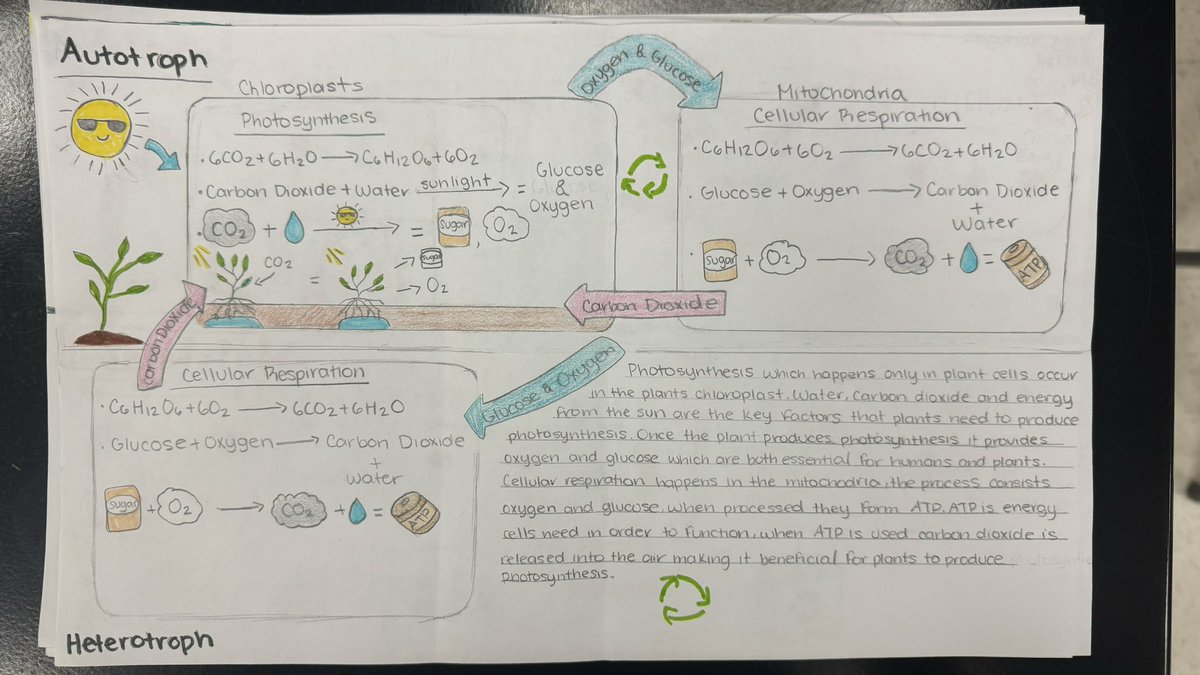 Autotroph
Chloroplasts
Photosynthesis
• 6CO2+6H2O → C6H12O6+6O2
• Carbon Dioxide + Water sunlight → = Glucose
&
Oxygen
• CO2 + → = Sugar, O2
CO2 = → Sugar
→ O2
Oxygen & Glucose
Mitochondria
Cellular Respiration
• C6H12O6+6O2 → 6CO2+6H2O
• Glucose + Oxygen → Carbon Dioxide
+
Water
• Sugar + O2 → CO2 + = ATP
Carbon Dioxide
Carbon Dioxide
Glucose & Oxygen
Cellular Respiration
• C6H12O6+6O2 → 6CO2+6H2O
• Glucose + Oxygen → Carbon Dioxide
+
water
Sugar + O2 → CO2 + = ATP
Heterotroph
Photosynthesis which happens only in plant cells occur
in the plants chloroplast. Water, carbon dioxide and energy
from the sun are the key factors that plants need to produce
photosynthesis. Once the plant produces photosynthesis it provides
oxygen and glucose which are both essential for humans and plants.
Cellular respiration happens in the mitochdria, the process consists
oxygen and glucose, when processed they form ATP. ATP is energy
cells need in order to function, when ATP is used carbon dioxide is
released into the air making it beneficial for plants to produce
photosynthesis.